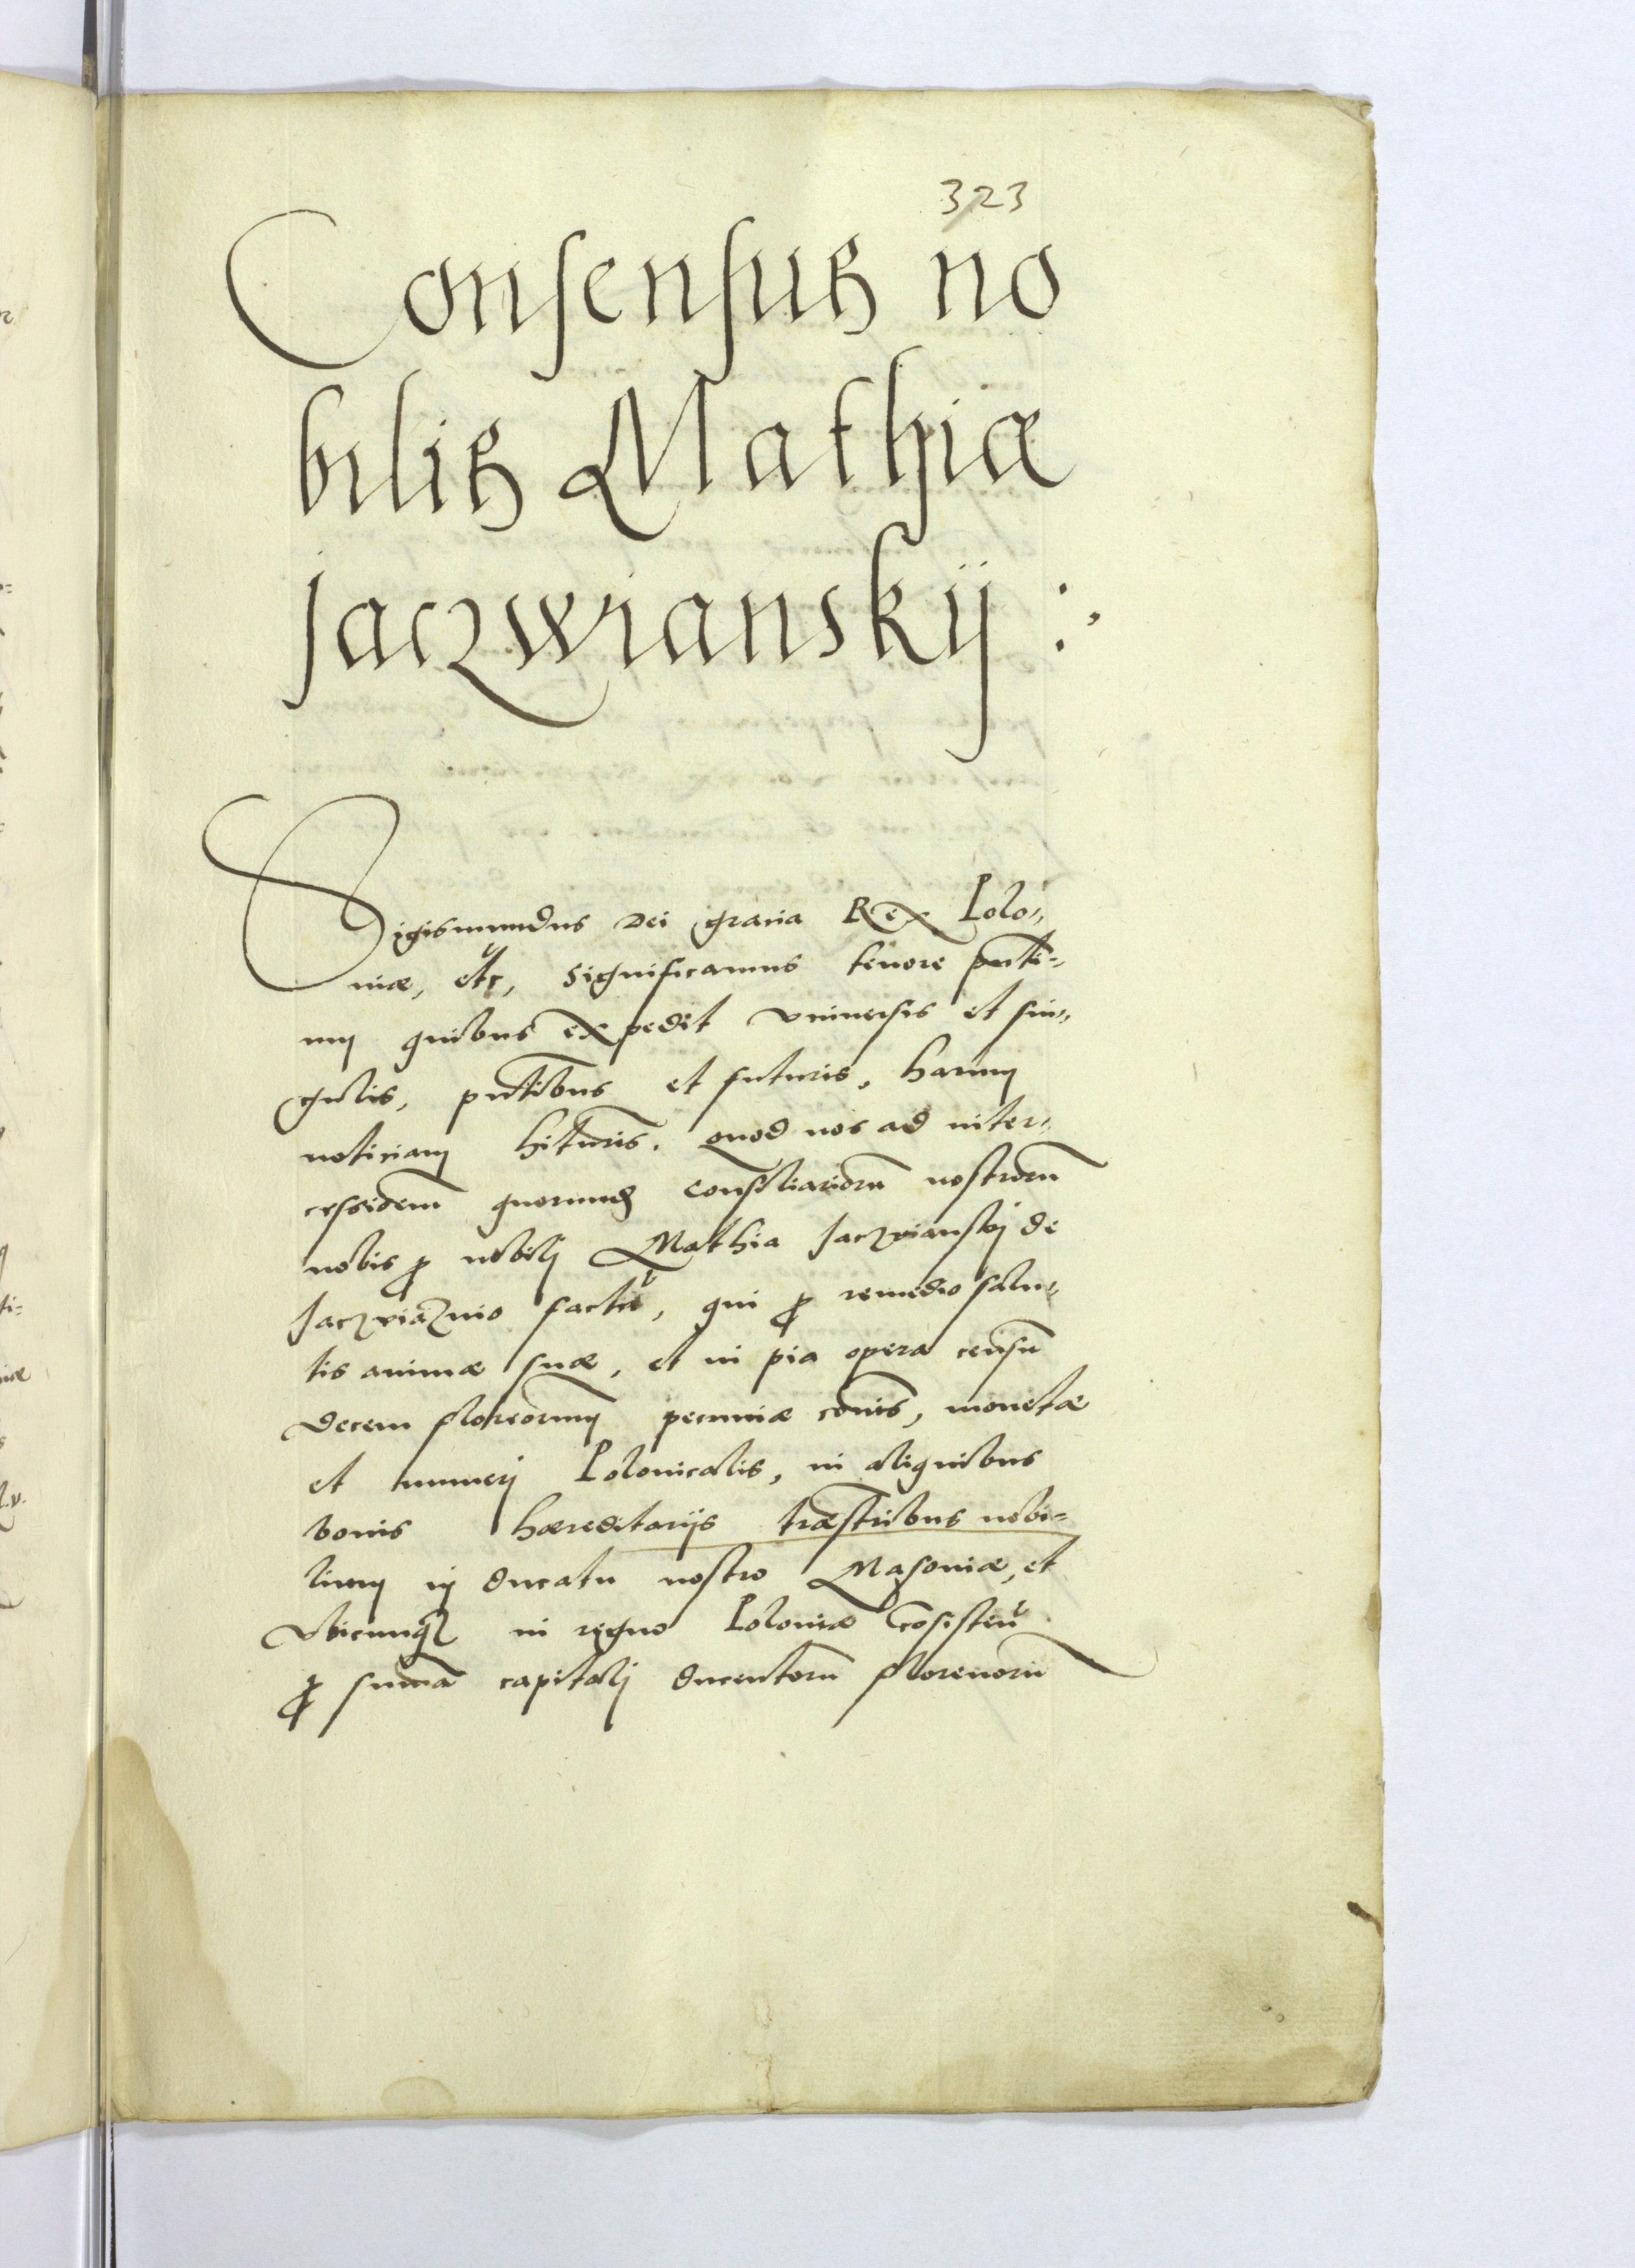 323
Consensus no
bilis Mathiæ
Jaczwranskij :
Sigismundus Dei gracia Rex Polo„
niæ, etc, significamus tenore pn̄ti=
um quibus expedit vniuersis et sin„
gulis, pn̄tibus et futuris, harum
noticiam hituris. Quod nos ad inter„
cessionem quorund consiliariorū nostrorū
nobis ꝓ nobilj Mathia Jaczvianskj de
factā, qui ꝓ remedio salu„
tis animæ suæ, et in pia opera censū
decem florenorum pecuniæ cōnis, monetæ
et numerj Polonicalis, in aliquibus
bonis hæreditarijs træstribus nobi=
lium in ducatu nostro Masouiæ, et
vbicunqꝫ in regno Poloniæ cōsisten̄
ꝓ sum̄a capitalj ducentorū florenorū